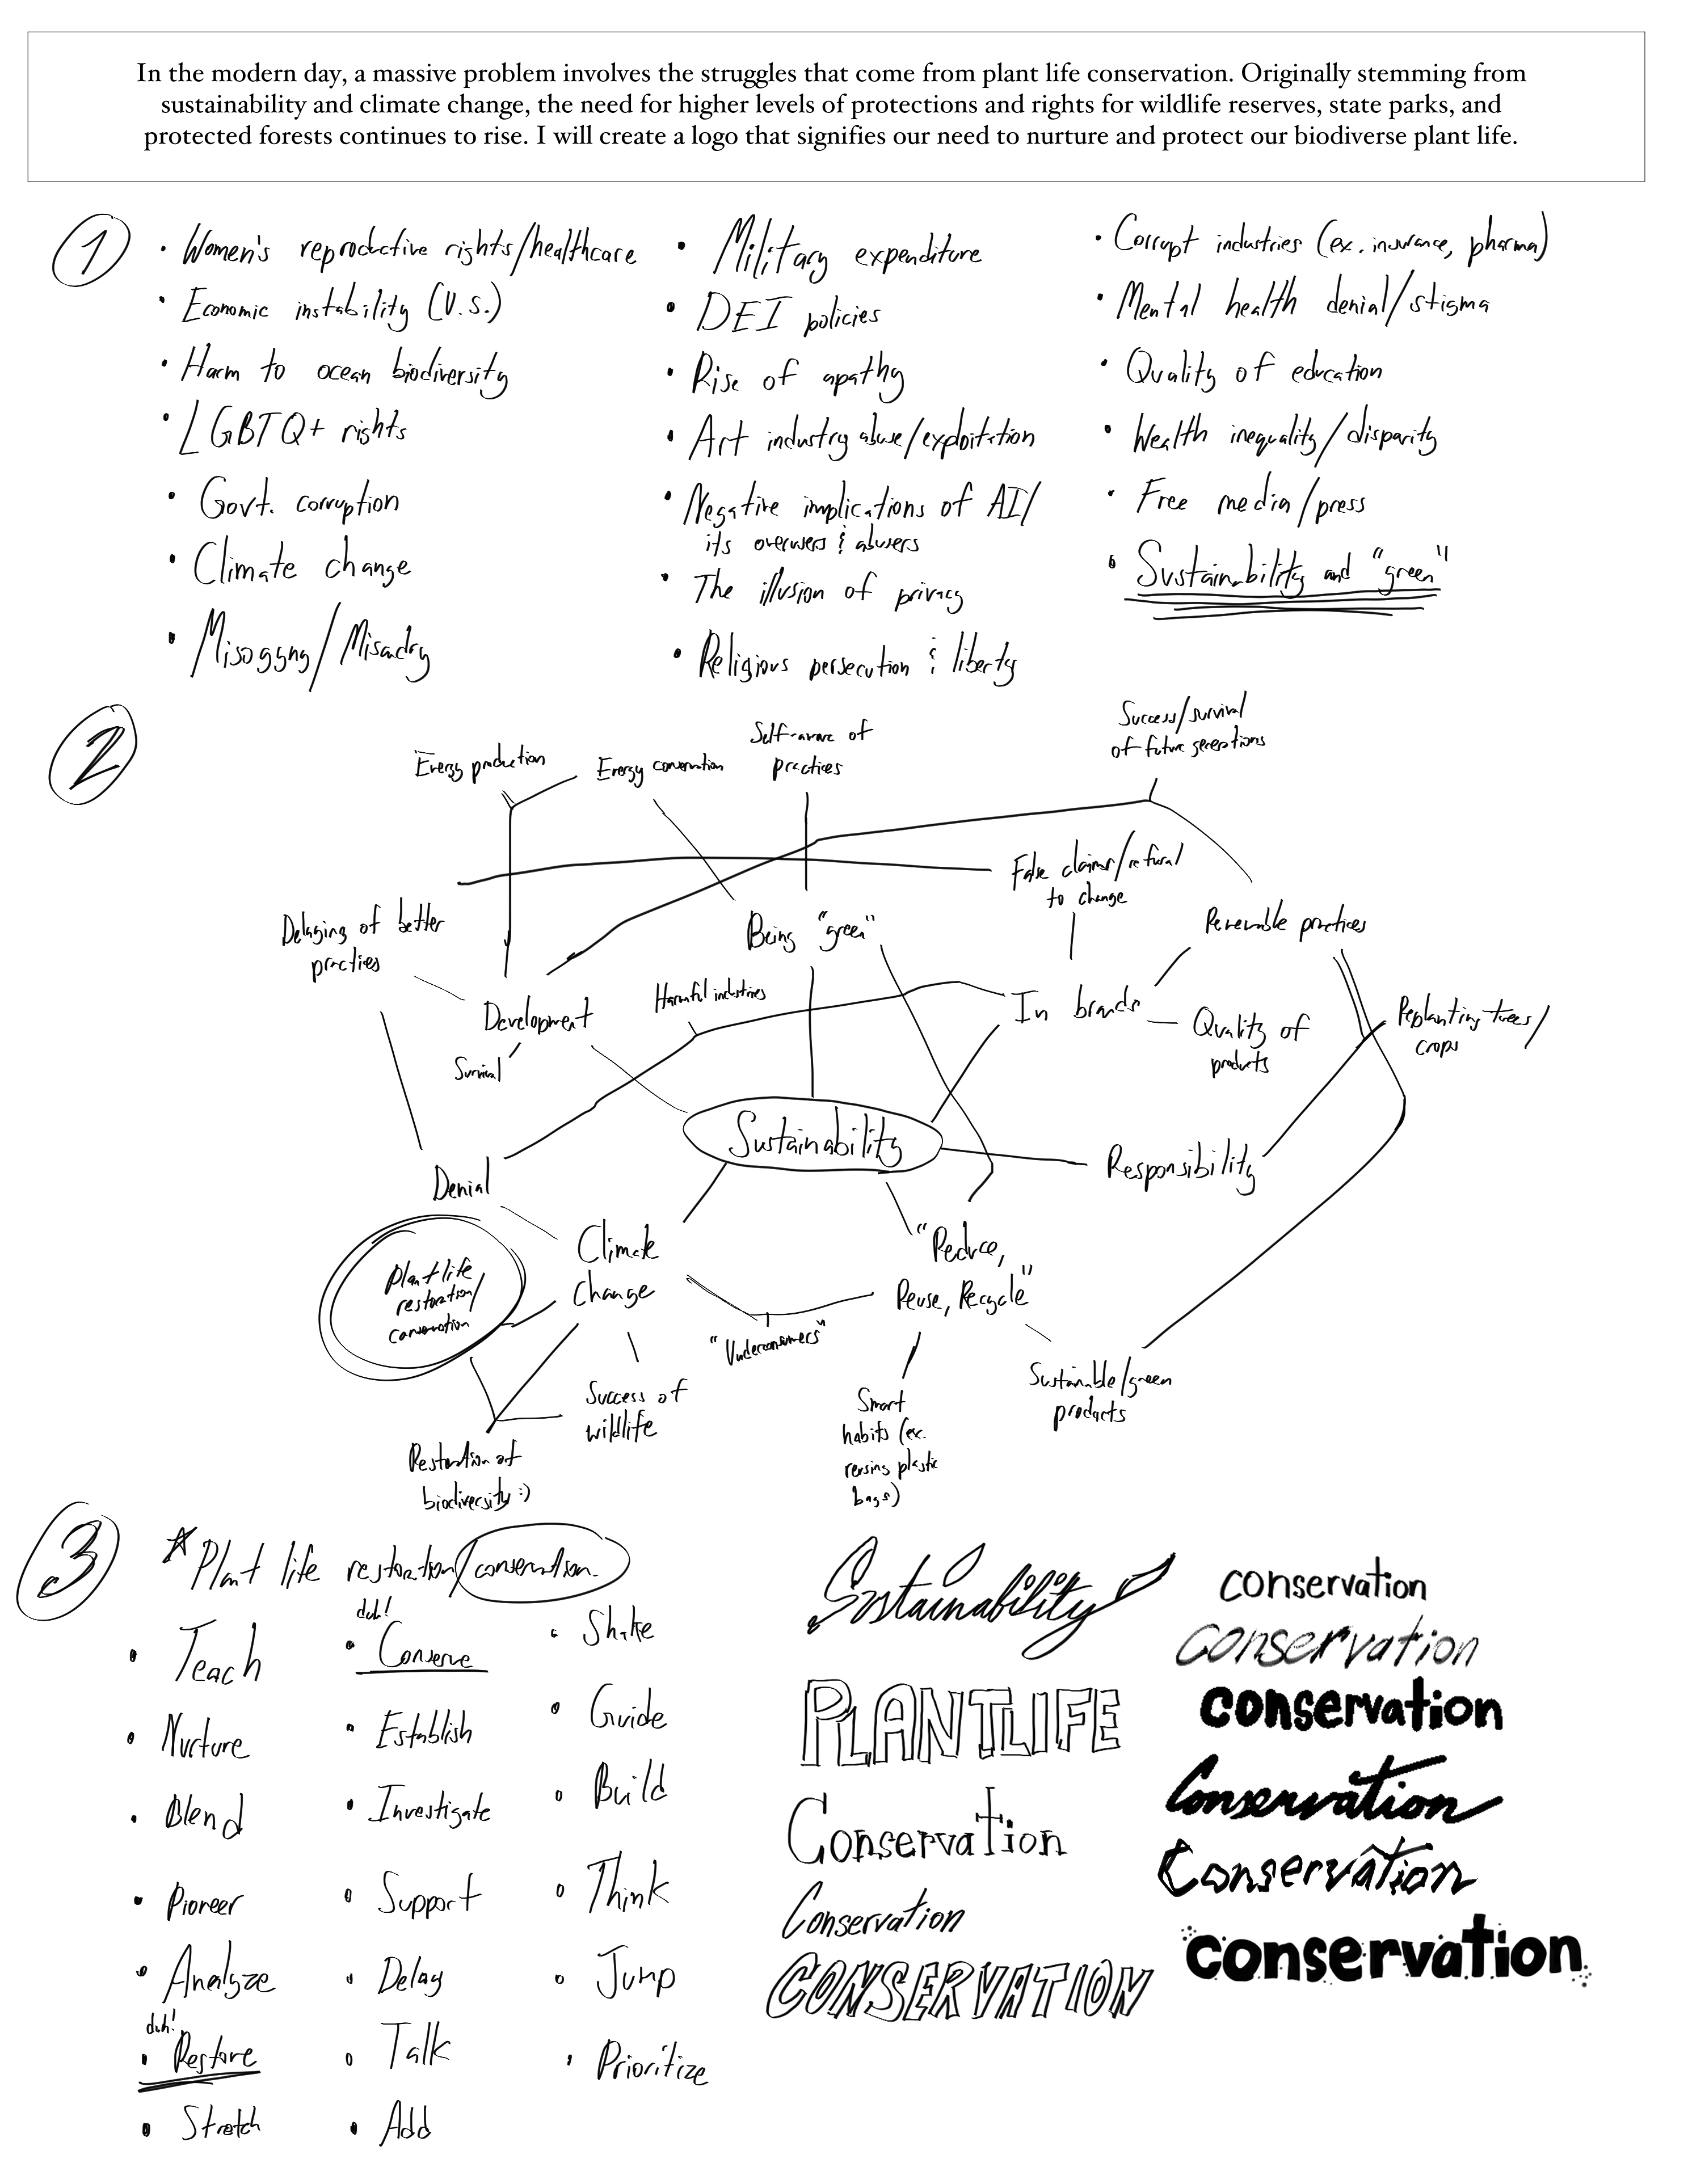 In the modern day, a massive problem involves the struggles that come from plant life conservation. Originally stemming from
sustainability and climate change, the need for higher levels of protections and rights for wildlife reserves, state parks, and
protected forests continues to rise. I will create a logo that signifies our need to nurture and protect our biodiverse plant life.
1
• Women's reproductive rights/healthcare
• Economic instability (U.S.)
• Harm to ocean biodiversity
• LGBTQ+ rights
• Govt. corruption
• Climate change
• Misogyny/Misadry
• Military expenditure
• DEI policies
• Rise of apathy
• Art industry abuse/exploitation
• Negative implications of AI/
its overusers & abusers
• The illusion of privacy
• Religious persecution & liberty
• Corrupt industries (ex. insurance, pharma)
• Mental health denial/stigma
• Quality of education
• Wealth inequality/disparity
• Free media/press
• Sustainability and "green"
2
Energy production
Energy conservation
Self-aware of
practices
Success/survival
of future generations
False claims/refusal
to change
Delaying of better
practices
Being "green"
Renewable practices
Harmful industries
Development
In brands
Quality of
products
Replanting trees/
crops
Survival
Sustainability
Responsibility
Denial
Climate
Change
"Reduce,
Reuse, Recycle"
Plant life
restoration/
conservation
"Underconsumers"
Success of
wildlife
Smart
habits (ex.
reusing plastic
bags)
Sustainable/green
products
Restoration of
biodiversity :)
3
* Plant life restoration/conservation.
• Teach
• Nurture
• Blend
• Pioneer
• Analyze
duh!
• Restore
• Stretch
duh!
• Conserve
• Establish
• Investigate
• Support
• Delay
• Talk
• Add
• Shake
• Guide
• Build
• Think
• Jump
• Prioritize
Sustainability
PLANTLIFE
Conservation
Conservation
CONSERVATION
conservation
conservation
conservation
Conservation
Conservation
conservation